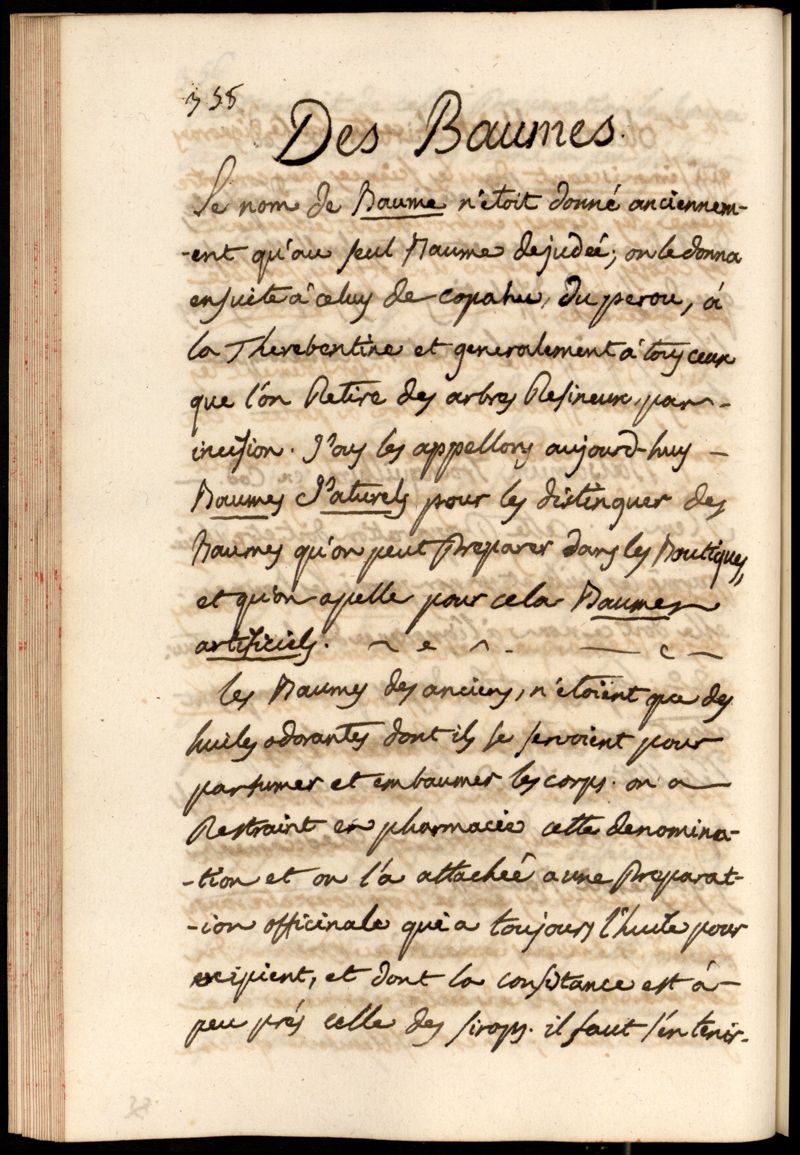 358
Des Baumes.
Le nom de Baume n'étoit donné anciennem-
-ent qu'au seul Baume dejudeé; on le donna
ensuite a celuy de copahu, du perou, á
la Therebentine et generalement á tous ceux
que l'on Retire des arbres Resineux, par-
incision. Nous les appellons aujourd-huy -
Baumes Naturels pour les distinguer des
Baumes qu'on peut preparer dans les Boutiques,
et qu'on apelle pour cela Baumes
artificiels.
les Baumes des anciens, n'étoient que des
huiles odorantes dont ils se servoient pour
parfumer et embaumer les corps. on a
Restraint en pharmacie cette denomina-
-tion et on l'a attacheé a une preparat-
-ion officinale qui a toujours l'huile pour
excipient, et dont la consistance est á -
peu prés celle des sirops. il faut s'en tenir.
38